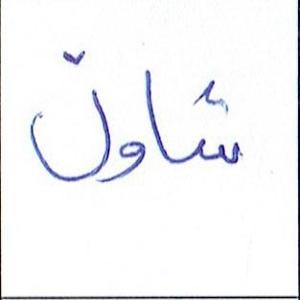 شاوڵ